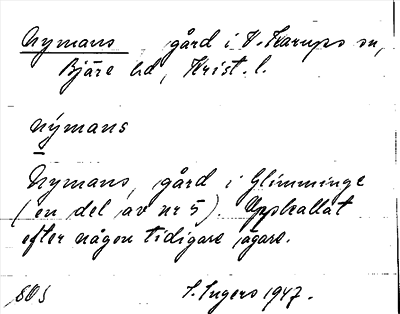 Nymans, gård i V. Karups sn,
Bjäre hd, Krist. l.
nýmans
Nymans, gård i Glimminge
(en del av nr 5). Uppkallat
efter någon tidigare ägare.
S. Ingers 1947.